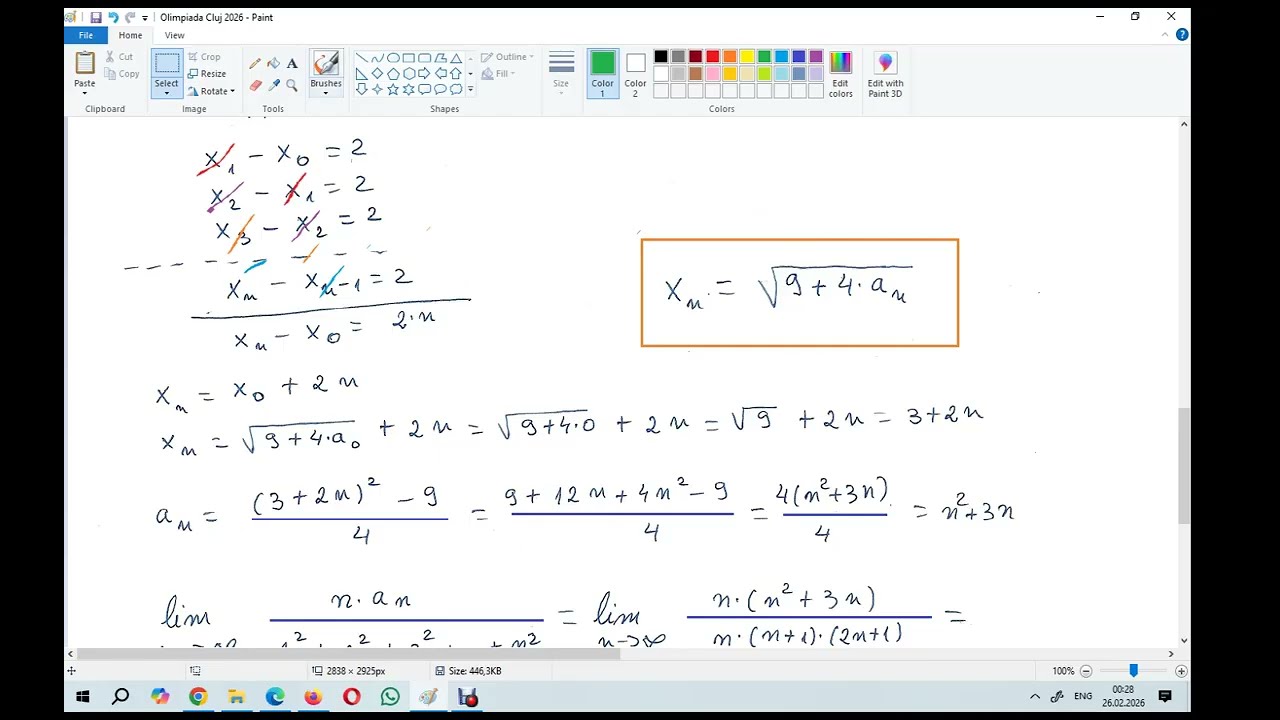 Olimpiada Cluj 2026 - Paint
File Home View
Paste Cut Copy Clipboard
Select Crop Resize Rotate Image
Tools
Brushes
Outline Fill Shapes
Size
Color 1 Color 2 Colors
Edit colors
Edit with Paint 3D
x₁ - x₀ = 2
x₂ - x₁ = 2
x₃ - x₂ = 2
- - - - - - - - - -
xₙ - xₙ₋₁ = 2
xₙ - x₀ = 2·n
xₙ = √(9 + 4·aₙ)
xₙ = x₀ + 2n
xₙ = √(9 + 4·a₀) + 2n = √(9+4·0) + 2n = √9 + 2n = 3+2n
aₙ = ((3 + 2n)² - 9)/4 = (9 + 12n + 4n² - 9)/4 = 4(n²+3n)/4 = n²+3n
lim n·aₙ = lim n→∞ n·(n² + 3n)/n·(n+1)·(2n+1) =
2838 × 2925px
Size: 446,3KB
100%
ENG
00:28
26.02.2026